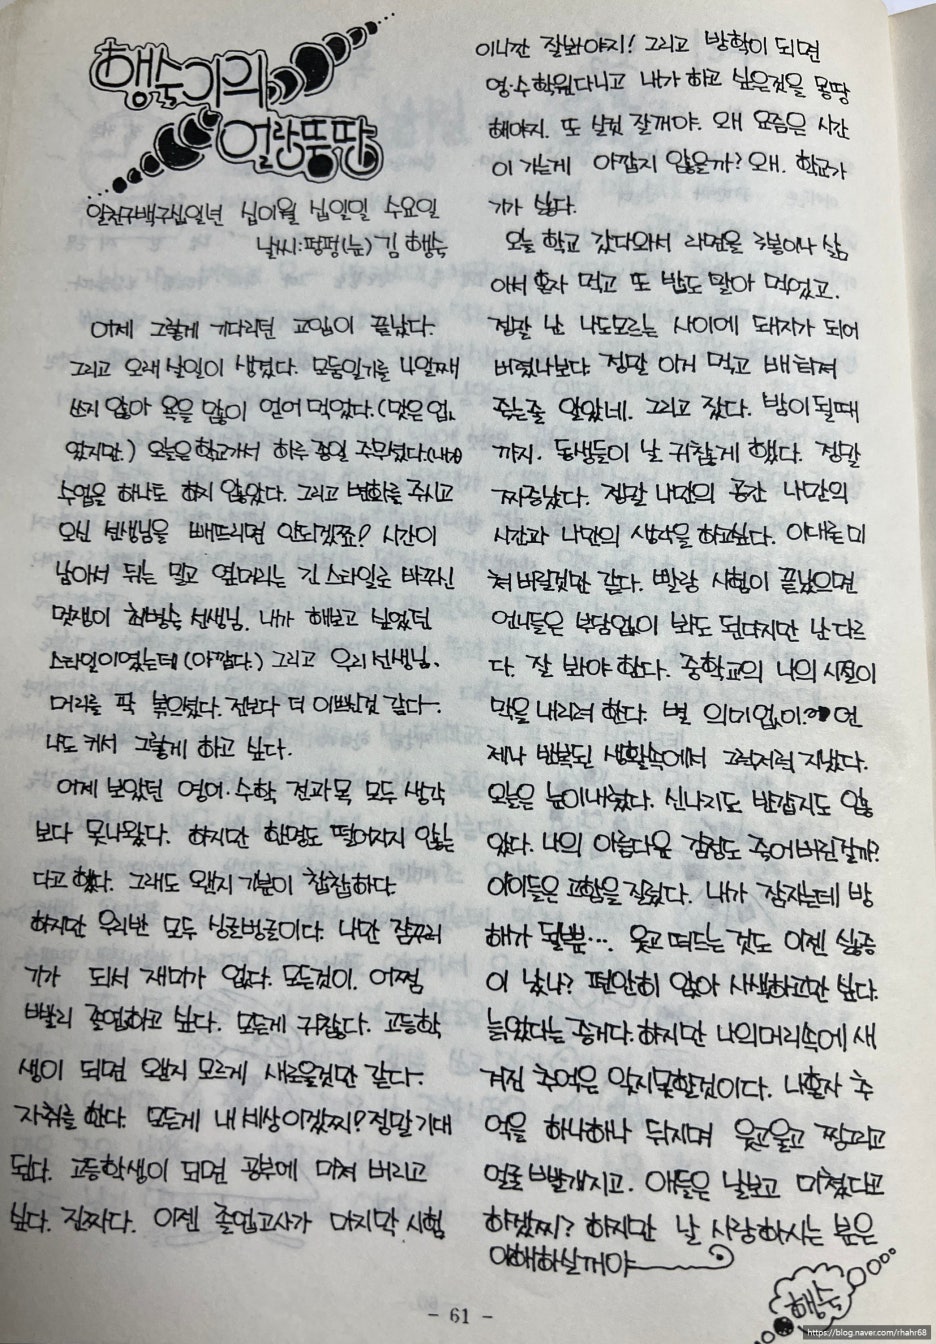 행숙이의
얼랑뚱땅
일천구백구십일년 십이월 십일일 수요일
날씨:펑펑(눈) 김 행숙
어제 그렇게 기다리던 고입이 끝났다.
그리고 오래 살일이 생겼다. 모둠일기를 나알째
쓰지 않아 욕을 많이 얻어 먹었다.(맞은 업,
었지만.) 오늘은 학교가서 하루 종일 주무셨다.
수업을 하나도 하지 않았다. 그리고 변화를 주시고
오신 선생님을 빼뜨리면 안되겠죠? 시간이
남아서 뒤는 말고 옆머리는 긴 스타일로 바꾸신
멋쟁이 최병숙 선생님. 내가 해보고 싶었던
스타일이였는데 (아깝다.) 그리고 우리 선생님.
머리를 팍 볶으셨다. 전보다 더 이쁘신것 같다.
나도 커서 그렇게 하고 싶다.
어제 보았던 영어·수학 전과목 모두 생각
보다 못나왔다. 하지만 한명도 떨어지지 않는
다고 했다. 그래도 왠지 기분이 찹찹하다
하지만 우리반 모두 싱글벙글이다. 나만 잠꾸러
기가 되서 재미가 없다. 모든것이. 어쩜
빨리 졸업하고 싶다. 모든게 귀찮다. 고등학
생이 되면 왠지 모르게 새로울것만 같다.
자취를 한다. 모든게 내 세상이겠찌? 정말 기대
된다. 고등학생이 되면 공부에 미쳐 버리고
싶다. 진짜다. 이젠 졸업고사가 마지막 시험
이니깐 잘봐야지! 그리고 방학이 되면
영·수 학원다니고 내가 하고 싶은것을 몽땅
해야지. 또 실컷 잘꺼야. 왜 요즘은 시간
이 가는게 아깝지 않을까? 왜. 학교가
기가 싫다.
오늘 학교 갔다와서 라면을 3봉이나 삶
아서 혼자 먹고 또 밥도 말아 먹었고.
정말 난 나도모르는 사이에 돼지가 되어
버렸나보다 정말 이거 먹고 배터져
죽는줄 알았네. 그리고 잤다. 밤이 될때
까지. 동생들이 날 귀찮게 했다. 정말
짜증났다. 정말 나만의 공간 나만의
시간과 나만의 생각을 하고싶다. 이대로 미
쳐 버릴것만 같다. 빨랑 시험이 끝났으면
언니들은 부담없이 봐도 된다지만 난 다르
다. 잘 봐야 한다. 중학교의 나의 시절이
막을 내리려 한다. 별 의미없이. 언
제나 반복된 생활속에서 그럭저럭 지냈다.
오늘은 눈이내렸다. 신나지도 반갑지도 않
았다. 나의 아름다운 감정도 죽어버린걸까?
아이들은 고함을 질렀다. 내가 잠자는데 방
해가 될뿐…. 웃고 떠드는 것도 이젠 싫증
이 났나? 편안히 앉아 사색하고만 싶다.
늙었다는 증거다. 하지만 나의머리속에 새
겨진 추억은 잊지못할것이다. 나혼자 추
억을 하나하나 뒤지며 웃고울고 찡그리고
얼굴 빨개지고. 애들은 날보고 미쳤다고
하겠찌? 하지만 날 사랑하시는 분은
이해하실꺼야
행숙
- 61 -
https://blog.naver.com/rhahr68